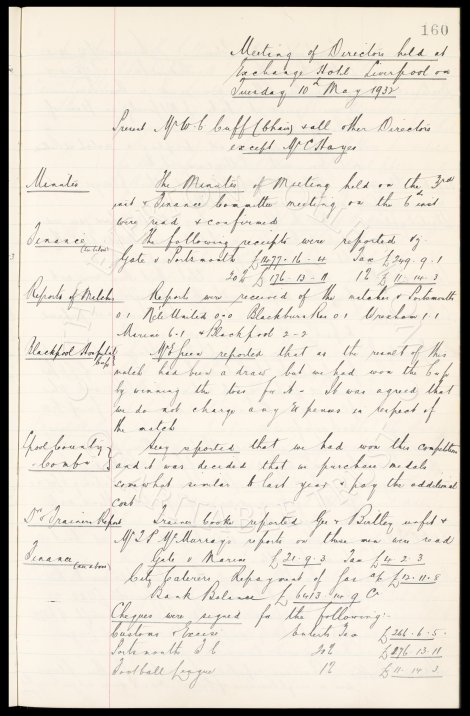 160
Meeting of Directors held at
Exchange Hotel Liverpool on
Tuesday 10th May 1932
Present Mr W C Cuff (Chair) & all other Directors
except Mr C Hayes
Minutes The Minutes of Meeting held on the 3rd
inst & Finance Committee meeting on the 6th inst
were read & confirmed
Finance (see below) The following receipts were reported
Gate v Portsmouth £1477-16-4 Tax £249.9.1
20% £176-13-11 1% £11-14-3
Reports of Matches Reports were received of the matches v Portsmouth
0.1 Newc United 0-0 Blackburn Res 0.1 Wrexham 1.1
Marine 6-1 & Blackpool 2-2
Blackpool Hospital Cup Mr Green reported that as the result of this
match had been a draw but we had won the Cup
by winning the toss for it - It was agreed that
we do not charge any expenses in respect of
the match
Lpool County Comb Secy reported that we had won this competition
and it was decided that we purchase medals
somewhat similar to last year & pay the additional
cost
Dr & Trainers Report Trainer Cooke reported Gee & unfit &
Mr J P McMurrays reports on these men was read
Finance (see above) Gate v Marine £21-9-3 Tax £4-2-3
City Caterers Repayment of Gas a/c £12-11-8
Bank Balance £6413-14-9 Cr
Cheques were signed for the following:-
Customs & Excise Enterts Tax £266-6-5-
Portsmouth F C 20% £276-13-11
Football League 1% £11-14-3